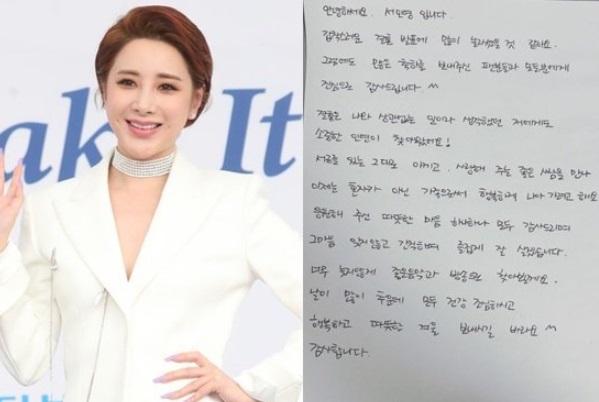 ake It
안녕하세요. 서인영 입니다.
갑작스러운 결혼 발표에 많이 놀라셨을 것 같아요.
그럼에도 모든 축하를 보내주신 팬분들과 모든분에게
진심으로 감사드립니다 ^^
결혼은 나와 상관없는 일이라 생각했던 저에게도
소중한 인연이 찾아왔어요!
서로를 있는 그대로 아끼고, 사랑해 주는 좋은 사람을 만나
이제는 혼자가 아닌 가족으로서 행복하게 나아가려고 해요
응원해 주신 따뜻한 마음 하나하나 모두 감사드리며
그마음 잊지않고 간직하며 즐겁게 잘 살겠습니다.
너무 늦지않게 좋은음악과 방송으로 찾아뵐게요.
날이 많이 추운데 모두 건강 조심하시고
행복하고 따뜻한 겨울 보내시길 바라요 ^^
감사합니다.